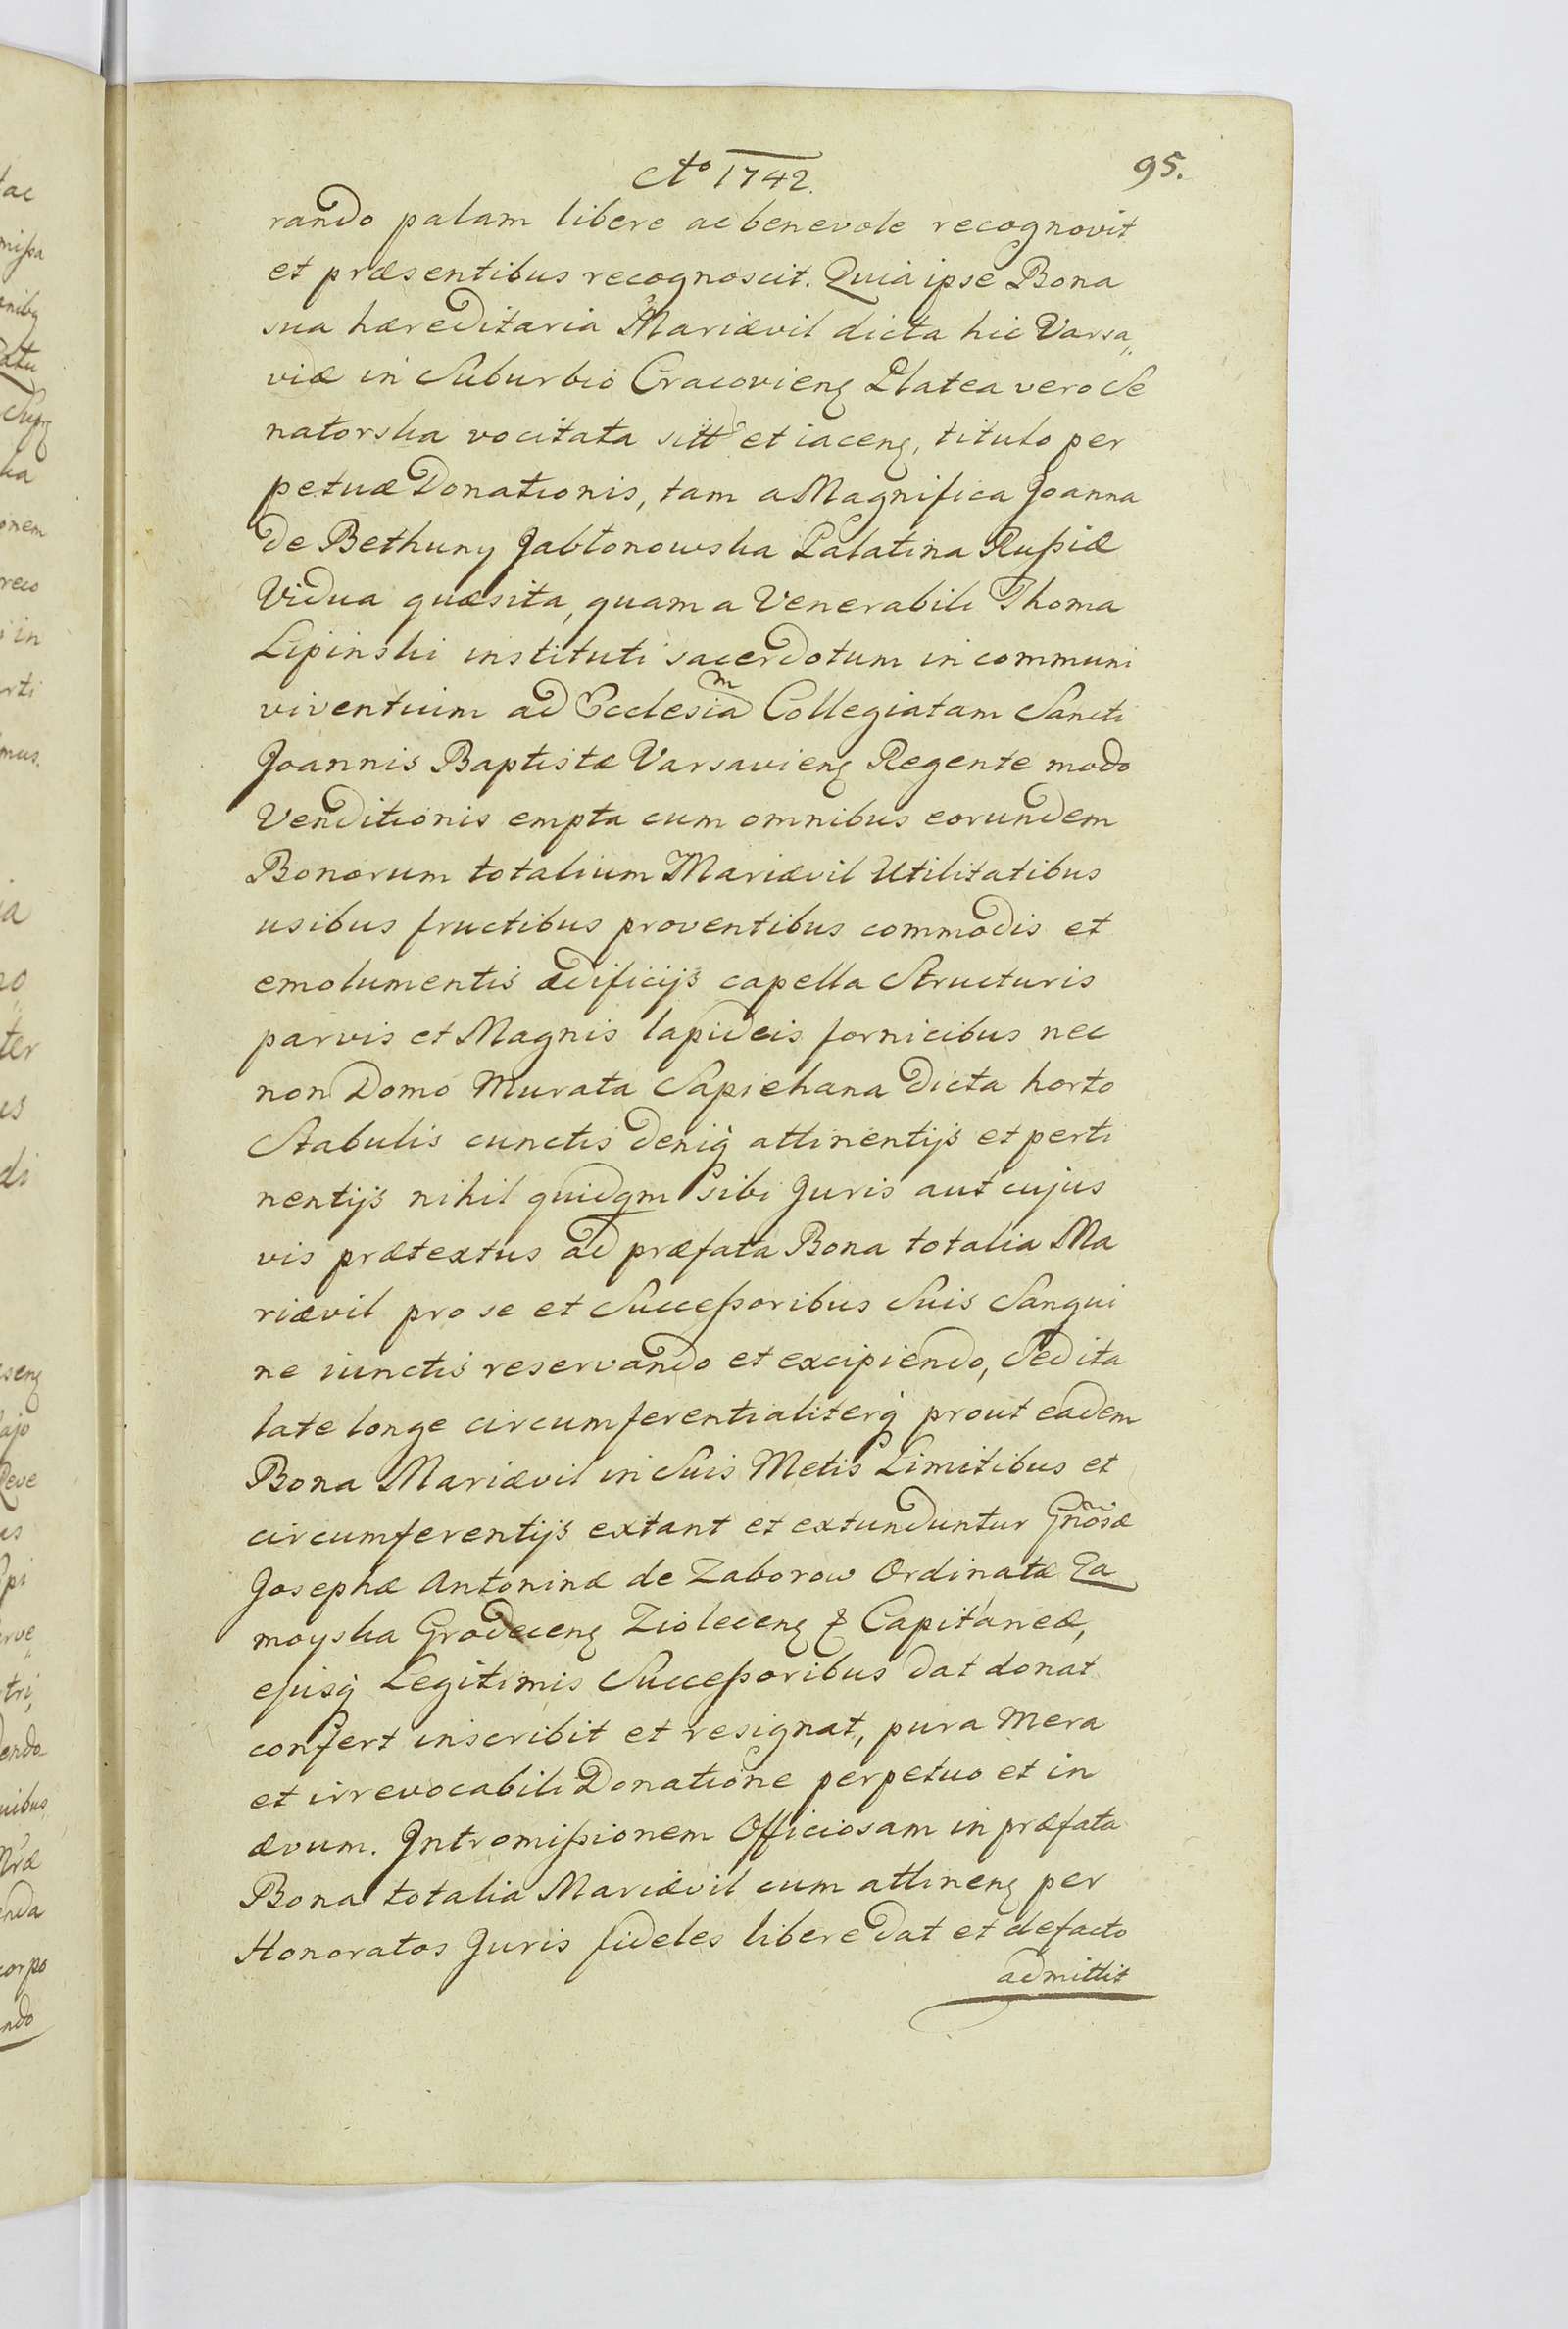 Ao 1742.
95.
rando palam libere ac benevole recognovit
et præsentibus recognoscit. Quia ipse Bona
sua hæreditaria Mariævil dicta hic Varsa„
viæ in Suburbio Cracovieng Platea vero Se
natorska vocitata sitt et iaceng, titulo per
petuæ Donationis, tam a Magnifica Joanna
de Bethuny Jabłonowska Palatina Rußiæ
Vidua quæsita, quam a Venerabili Thoma
Lipinski instituti sacerdotum in communi
viventium ad Ecclesiam Collegiatam Sancti
Joannis Baptistæ Varsavieng Regente modo
Venditionis empta cum omnibus eorundem
Bonorum totalium Mariævil Utilitatibus
usibus fructibus proventibus commodis et
emolumentis ædificijs capella Structuris
parvis et Magnis lapideis fornicibus nec
non Domo Murata Sapiehana Dicta horto
Stabulis cunctis deniq attinentijs et perti
nentijs nihil quidqm sibi Juris aut cujus
vis prætextus ad præfata Bona totalia Ma
riævil pro se et Succeßoribus Suis Sangui
ne iunctis reservando et excipiendo, Sed ita
late longe circumferentialiterq prout eadem
Bona Mariævil in Suis Metis Limitibus et
circumferentijs extant et extunduntur Gnosæ
Josephæ Antoninæ de Zaborow Ordinatæ Za
moyska Grodeceng Zioleceng & Capitaneæ,
ejusq Legitimis Succeßoribus dat donat
confert inscribit et resignat, pura Mera
et irrevocabili Donatione perpetuo et in
ævum. Intromißionem Officiosam in præfata
Bona totalia Mariævil cum attineng per
Honoratos Juris fideles libere dat et defacto
admittit